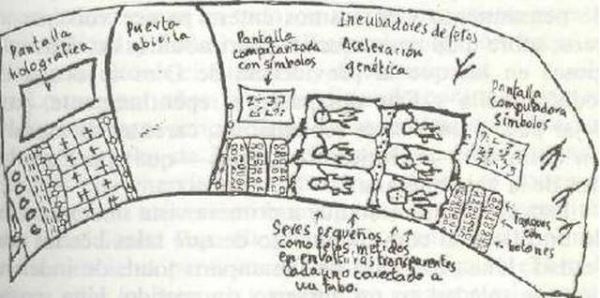 Pantalla
holográfica
Puerta
abierta
Pantalla
computarizada
con símbolos
Incubadores de fetos
Aceleración
genética
Pantalla
computadora
símbolos
Tanques
con
botones
Seres pequeños
como fetos, metidos
en envases transparentes
Cada uno conectado a
un tubo.